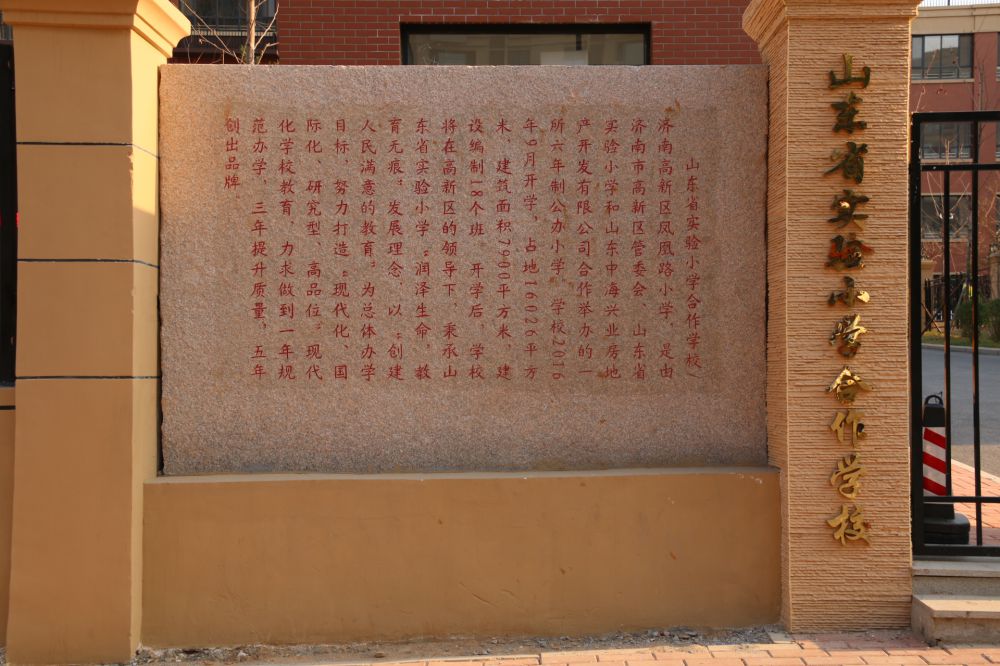 山东省实验小学合作学校
山东省实验小学合作学校/
济南高新区凤凰路小学，是由
济南市高新区管委会、山东省
实验小学和山东中海兴业房地
产开发有限公司合作举办的一
所六年制公办小学。学校2016
年9月开学，占地16026平方
米、建筑面积7900平方米，建
设编制18个班。开学后，学校
将在高新区的领导下，秉承山
东省实验小学“润泽生命，教
育无痕”发展理念，以“创建
人民满意的教育”为总体办学
目标，努力打造“现代化、国
际化、研究型、高品位”现代
化学校教育，力求做到一年规
范办学，三年提升质量，五年
创出品牌。